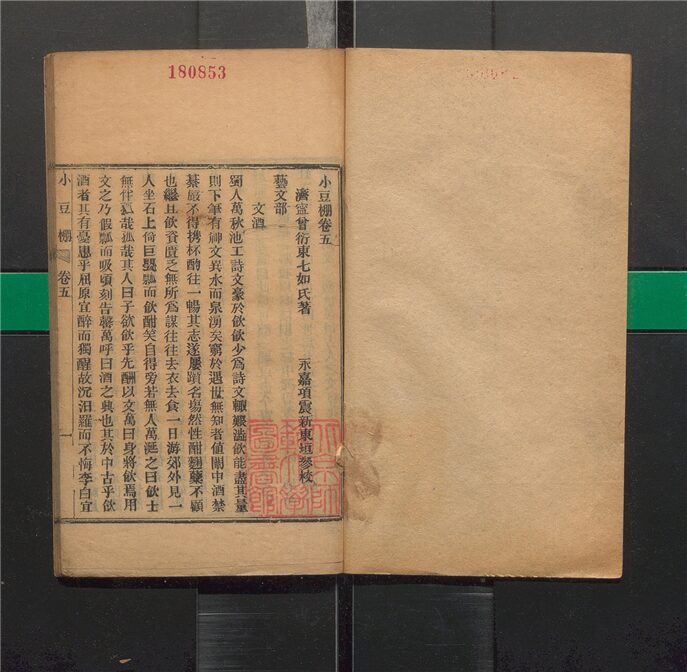 180853
小豆棚卷五
濟寧曾衍東七如氏著 永嘉項震新東垣參校
藝文部
文酒
蜀人萬秋池工詩文豪於飲飲少為詩文輒艱澁飲能盡其量
則下筆有神文異水而泉湧矣窮於遇世無知者值關中酒禁
綦嚴不得携杯酌往一暢其志遂屢躓名塲然性酣麯糵不顧
也繼且飲資匱乏無所為謀往往去衣去食一日游郊外見一
人坐石上倚巨甖瓢而飲酣笑自得旁若無人萬涎之曰飲士
無伴孤哉孤哉其人曰子欲飲乎先酬以文萬曰身將飲焉用
文之乃假瓢而吸頃刻告罄萬呼曰酒之興也其於中古乎飲
酒者其有憂患乎屈原宜醉而獨醒故沉汨羅而不悔李白宜
小豆棚 卷五 一